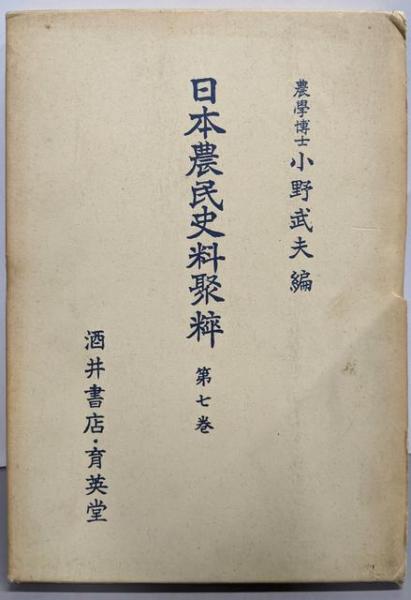 農學博士 小野武夫 編
日本農民史料聚粹 第七巻
酒井書店・育英堂